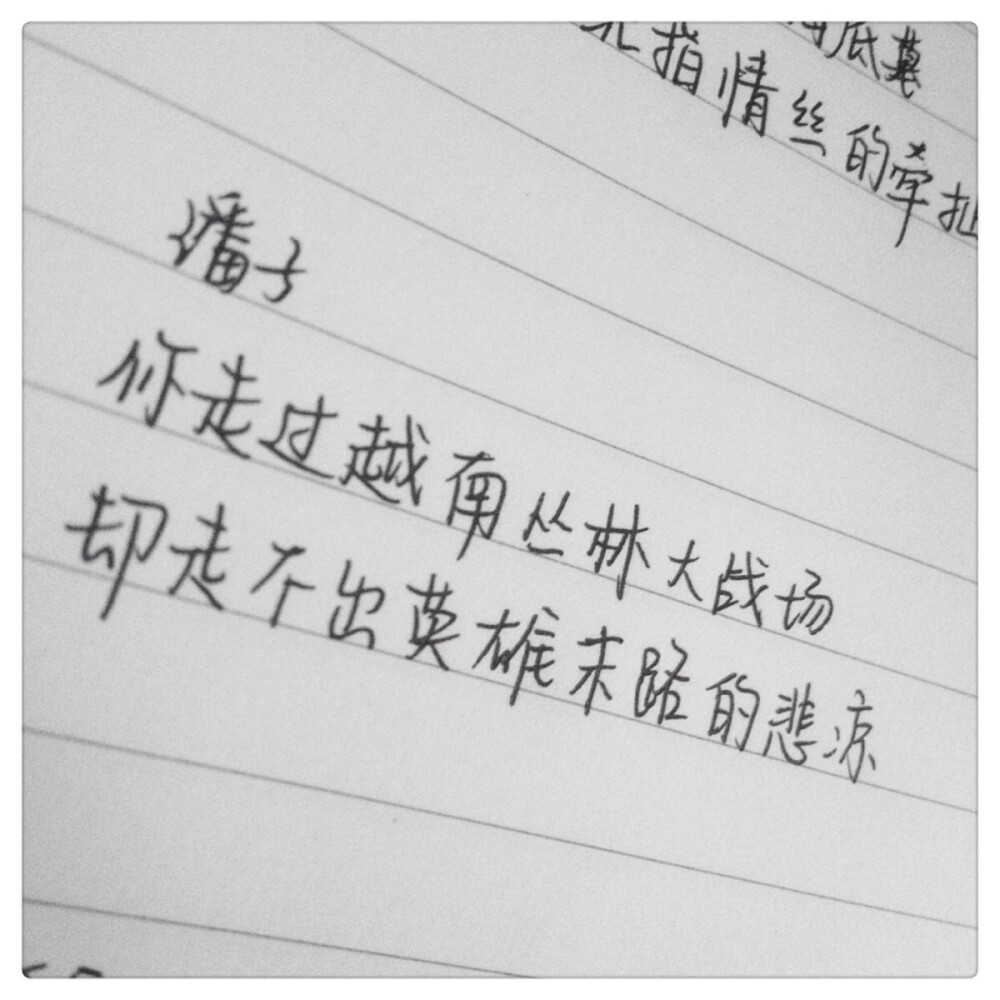 底墓
指情丝的牵扯
潘子
你走过越南丛林大战场
却走不出英雄末路的悲凉